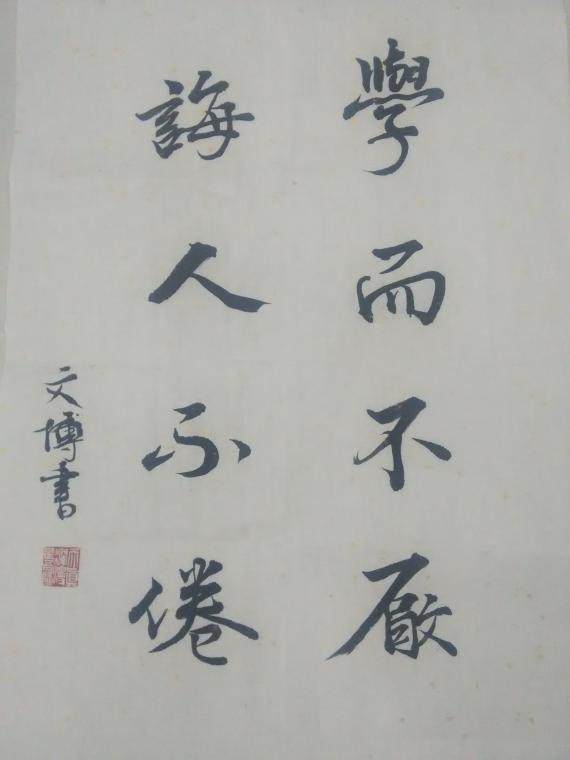 學而不厭
誨人不倦
文博書